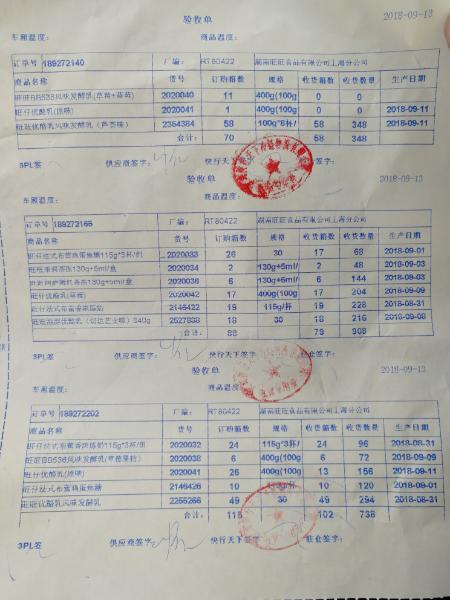 验收单 2018-09-13
车厢温度: 商品温度:
订单号 189272140 厂编: RT80422 湖南旺旺食品有限公司上海分公司
商品名称 货号 订购箱数 规格 收货箱数 收货数量 生产日期
旺旺BB536风味发酵乳(草莓+蓝莓) 2020040 11 400g(100g 0 0
旺仔优酸乳(原味) 2020041 1 400g(100g 0 0 2018-09-11
旺旺优酪乳风味发酵乳(芦荟味) 2354384 58 100g*6杯/ 58 348 2018-09-11
合计: 70 58 348
3PL签 供应商签字: 快行天下签字: 驻仓签字:
验收单 2018-09-13
车厢温度: 商品温度:
订单号 189272166 厂编: RT80422 湖南旺旺食品有限公司上海分公司
商品名称 货号 订购箱数 规格 收货箱数 收货数量 生产日期
2020033 26 30 17 68 2018-09-01
2020034 2 130g+5ml/ 2 48 2018-09-03
2020036 6 130g+5ml/ 6 144 2018-09-03
旺仔优酸乳(草莓) 2020042 17 400g(100g 17 204 2018-09-09
2146422 19 115g/杯 19 228 2018-08-31
2527838 18 30 18 216 2018-09-08
合计: 88 79 908
3PL签 供应商签字: 快行天下签字: 驻仓签字:
验收单 2018-09-13
车厢温度: 商品温度:
订单号 189272202 厂编: RT80422 湖南旺旺食品有限公司上海分公司
商品名称 货号 订购箱数 规格 收货箱数 收货数量 生产日期
2020032 24 115g*3杯/ 24 96 2018-08-31
2020038 6 400g(100g 6 72 2018-09-09
旺仔优酸乳(原味) 2020041 26 400g(100g 13 156 2018-09-11
2146426 10 10 120 2018-09-01
旺旺优酪乳风味发酵乳 2255266 49 30 49 294 2018-08-31
合计: 115 102 738
3PL签 供应商签字: 快行天下签字: 驻仓签字: